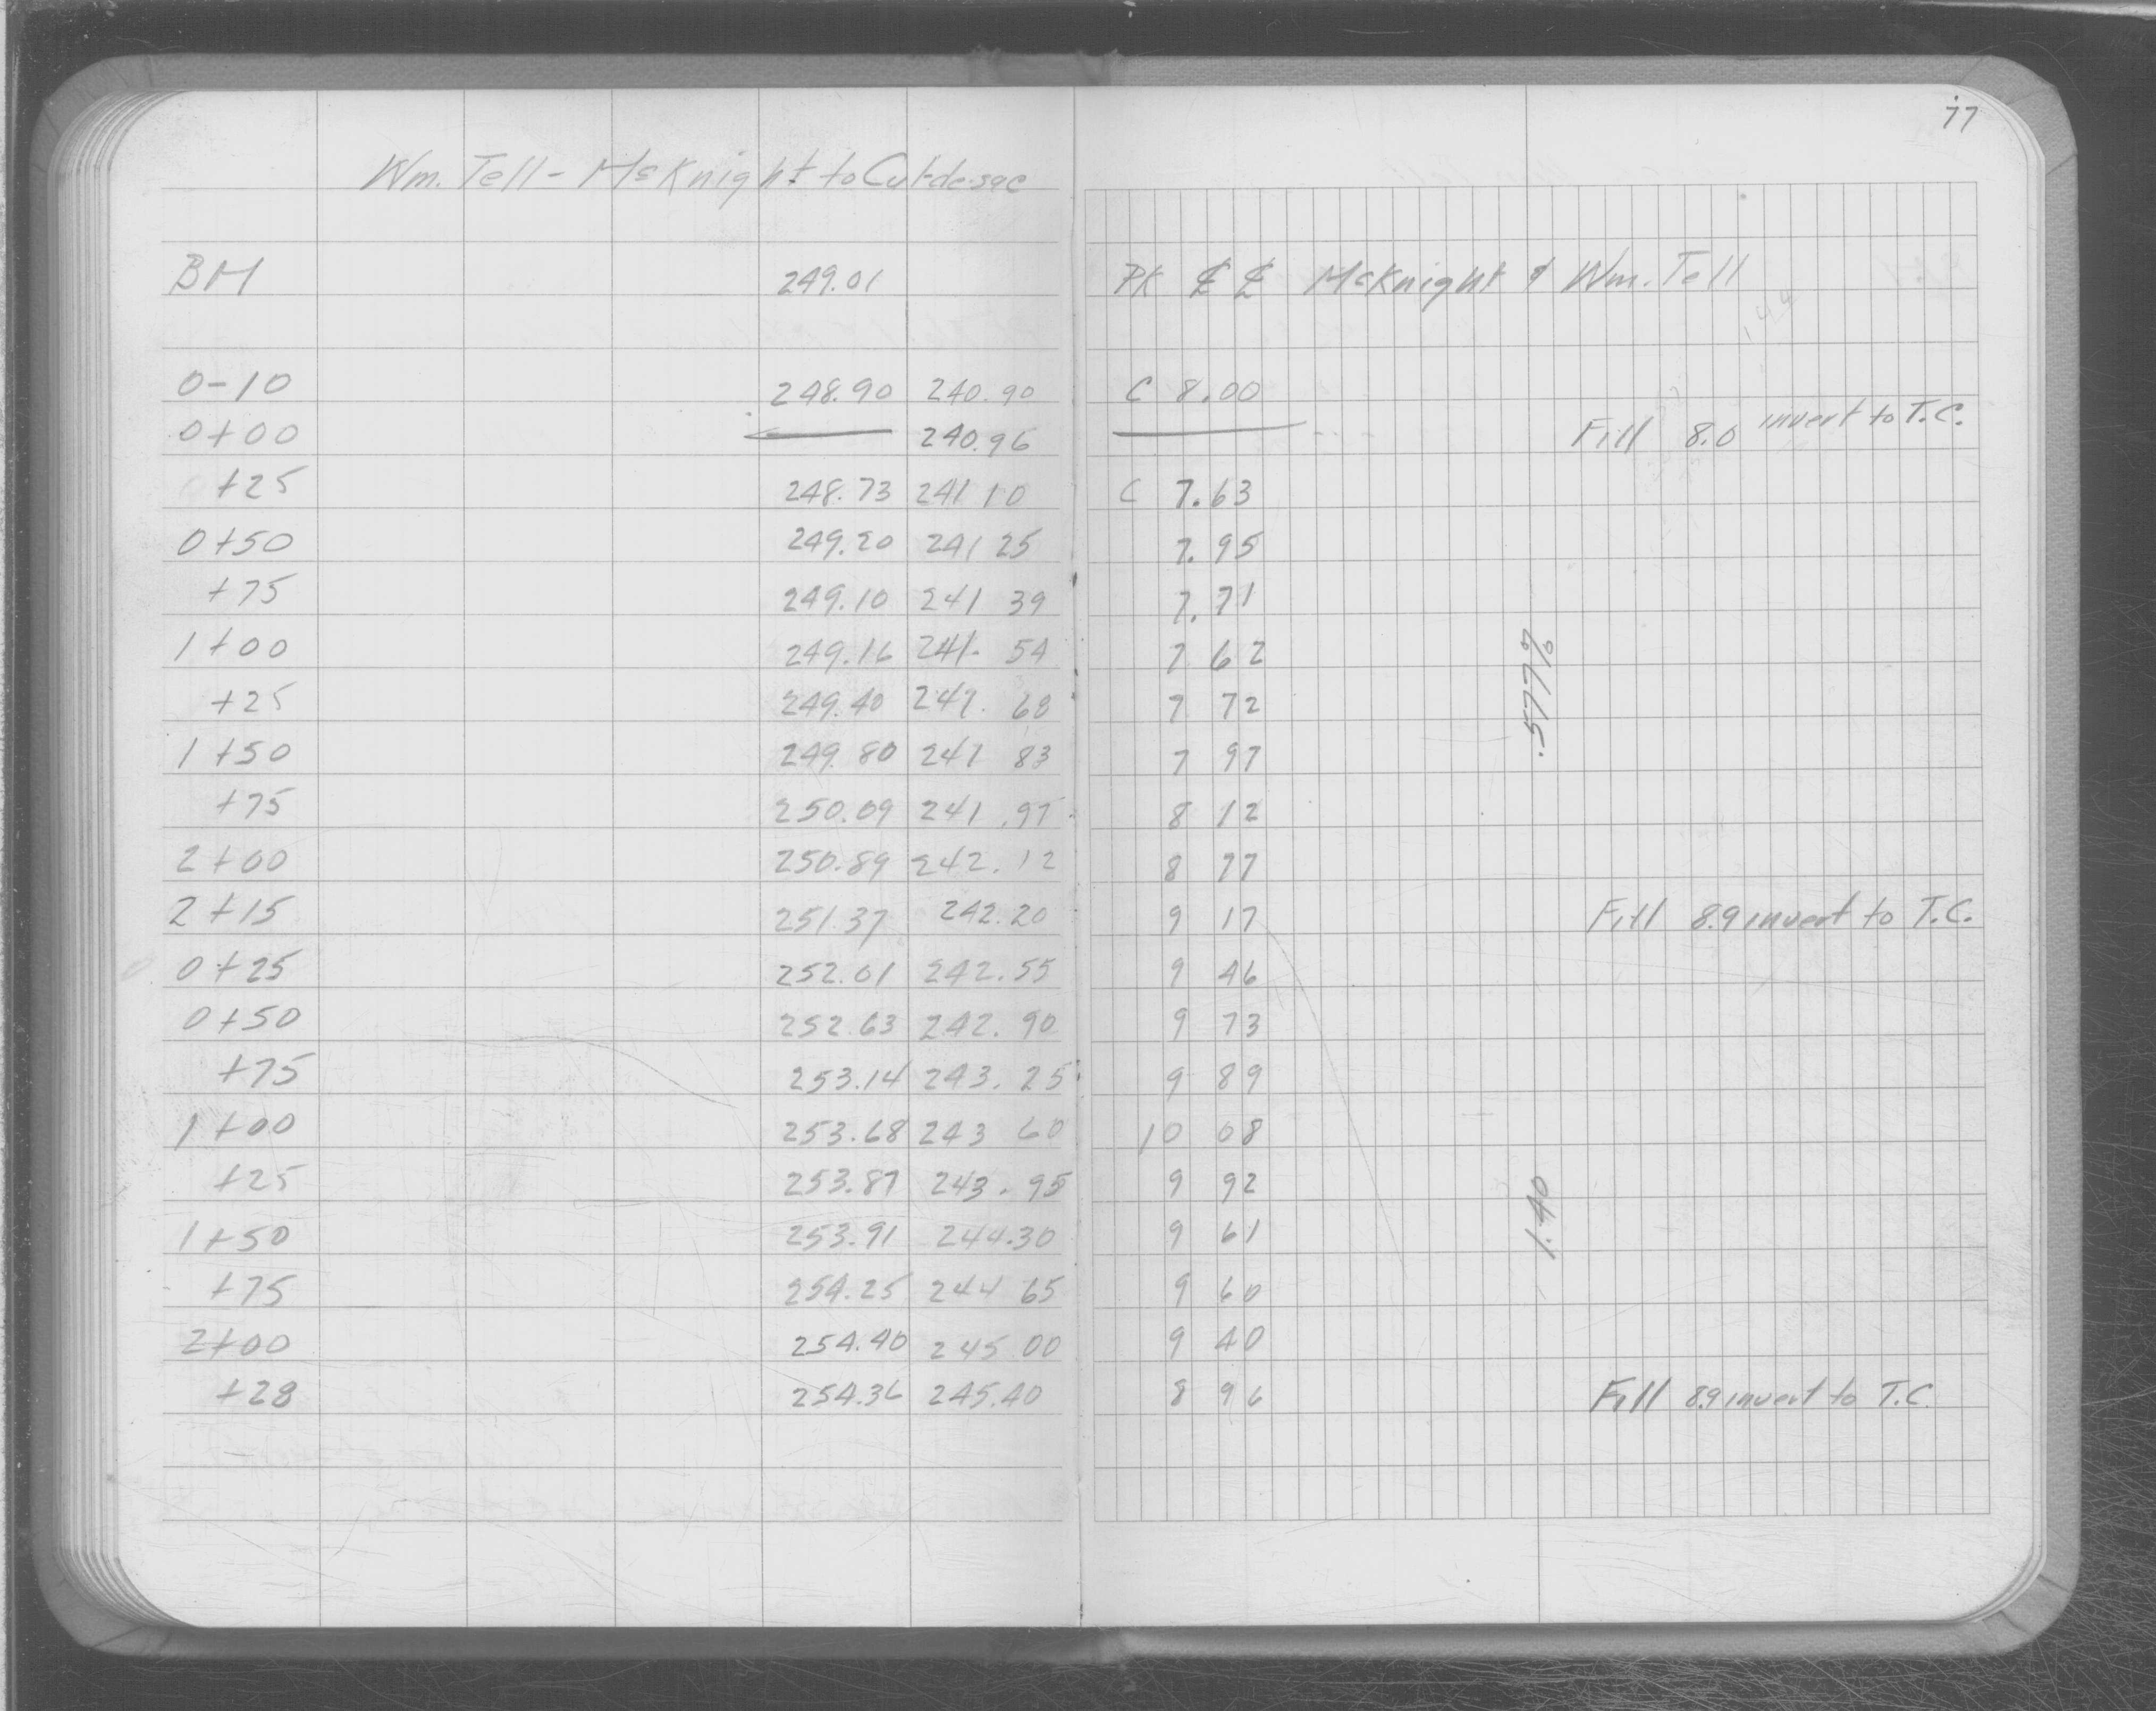 77
Wm. Tell - McKnight to Cul-de-sac
BM 249.01 PK ℄ ℄ McKnight & Wm. Tell
0-10 248.90 240.90 C 8.00
0+00 240.96 Fill 8.0 invert to T.C.
+25 248.73 241 10 C 7.63
0+50 249.20 241 25 7.95
+75 249.10 241 39 7.71
1+00 249.16 241. 54 7 62
+25 249.40 241. 68 7 72
1+50 249.80 241 83 7 97
.577%
+75 250.09 241.97 8 12
2+00 250.89 242.12 8 77
2+15 251.37 242.20 9 17 Fill 8.9 invert to T.C.
0+25 252.01 242.55 9 46
0+50 252.63 242.90 9 73
+75 253.14 243.25 9 89
1+00 253.68 243 60 10 08
+25 253.87 243.95 9 92
1+50 253.91 244.30 9 61
1.40
+75 254.25 244 65 9 60
2+00 254.40 245 00 9 40
+28 254.36 245.40 8 96 Fill 8.9 invert to T.C.